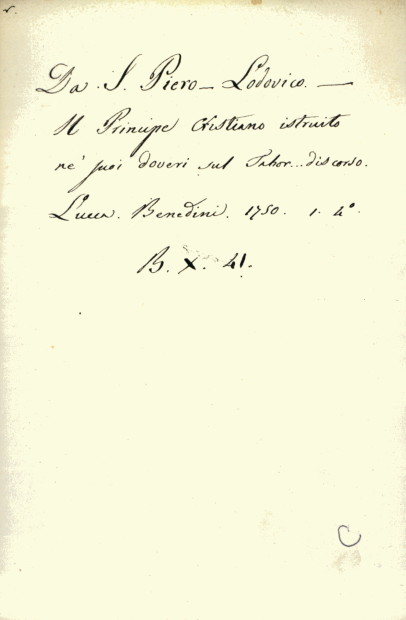 v.
Da S. Piero - Lodovico. —
Il Principe Cristiano istruito
ne' suoi doveri sul Tabor... discorso.
Lucca. Benedini. 1750. 1. 4°.
B. X. 41.
C